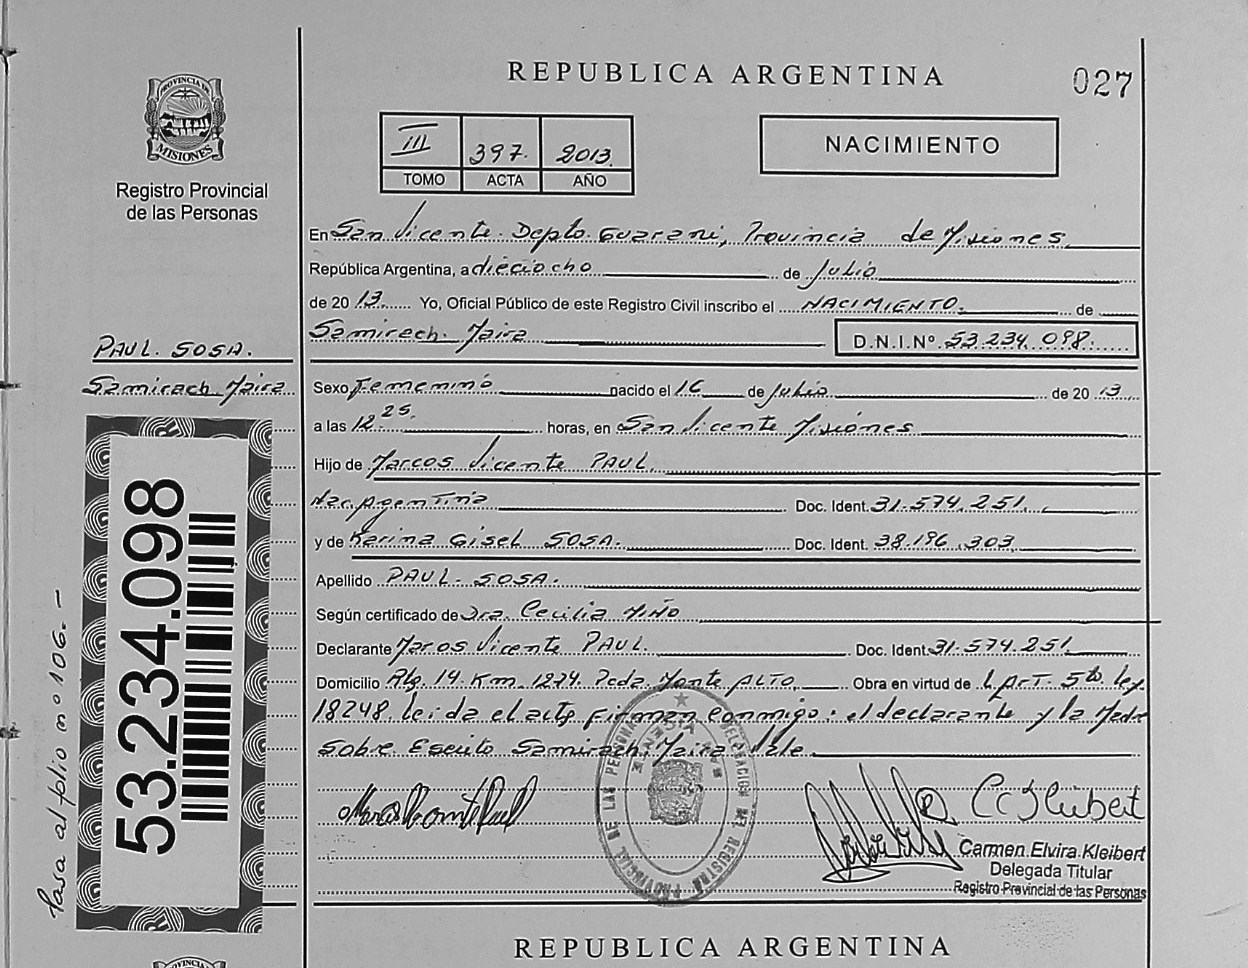 REPUBLICA ARGENTINA
027
PROVINCIA DE
MISIONES
Registro Provincial
de las Personas
III 397. 2013.
TOMO ACTA AÑO
NACIMIENTO
En San Vicente. Depto. Guarani, Provincia de Misiones.
República Argentina, a dieciocho de Julio
de 2013. Yo, Oficial Público de este Registro Civil inscribo el NACIMIENTO. de
Samirech. Maira D.N.I.Nº 53.234.098.
PAUL. SOSA.
Samirach Maira
Sexo Femenino nacido el 16 de Julio de 2013.
a las 12 25. horas, en San Vicente Misiones
Hijo de Marcos Vicente PAUL.
Nac. Argentina Doc. Ident. 31.574.251.
y de Karina Gisel SOSA. Doc. Ident. 38.196.303
Apellido PAUL - SOSA.
Según certificado de Dra. Cecilia MIÑO
Declarante Maros Vicente PAUL. Doc. Ident. 31.574.251.
Domicilio Km. 1274. Pcda. Monte ALTO, Obra en virtud de L. ArT. 5to. ley
18248. leida el acta firman conmigo: el declarante y la Madre
Sobre Escrito Samirach. Maira Vale.
53.234.098
Pasa al folio nº 106.-
REGISTRO PROVINCIAL DE LAS PERSONAS
DELEGACION DEL
Carmen Elvira Kleibert
Delegada Titular
Registro Provincial de las Personas
REPUBLICA ARGENTINA
PROVINCIA